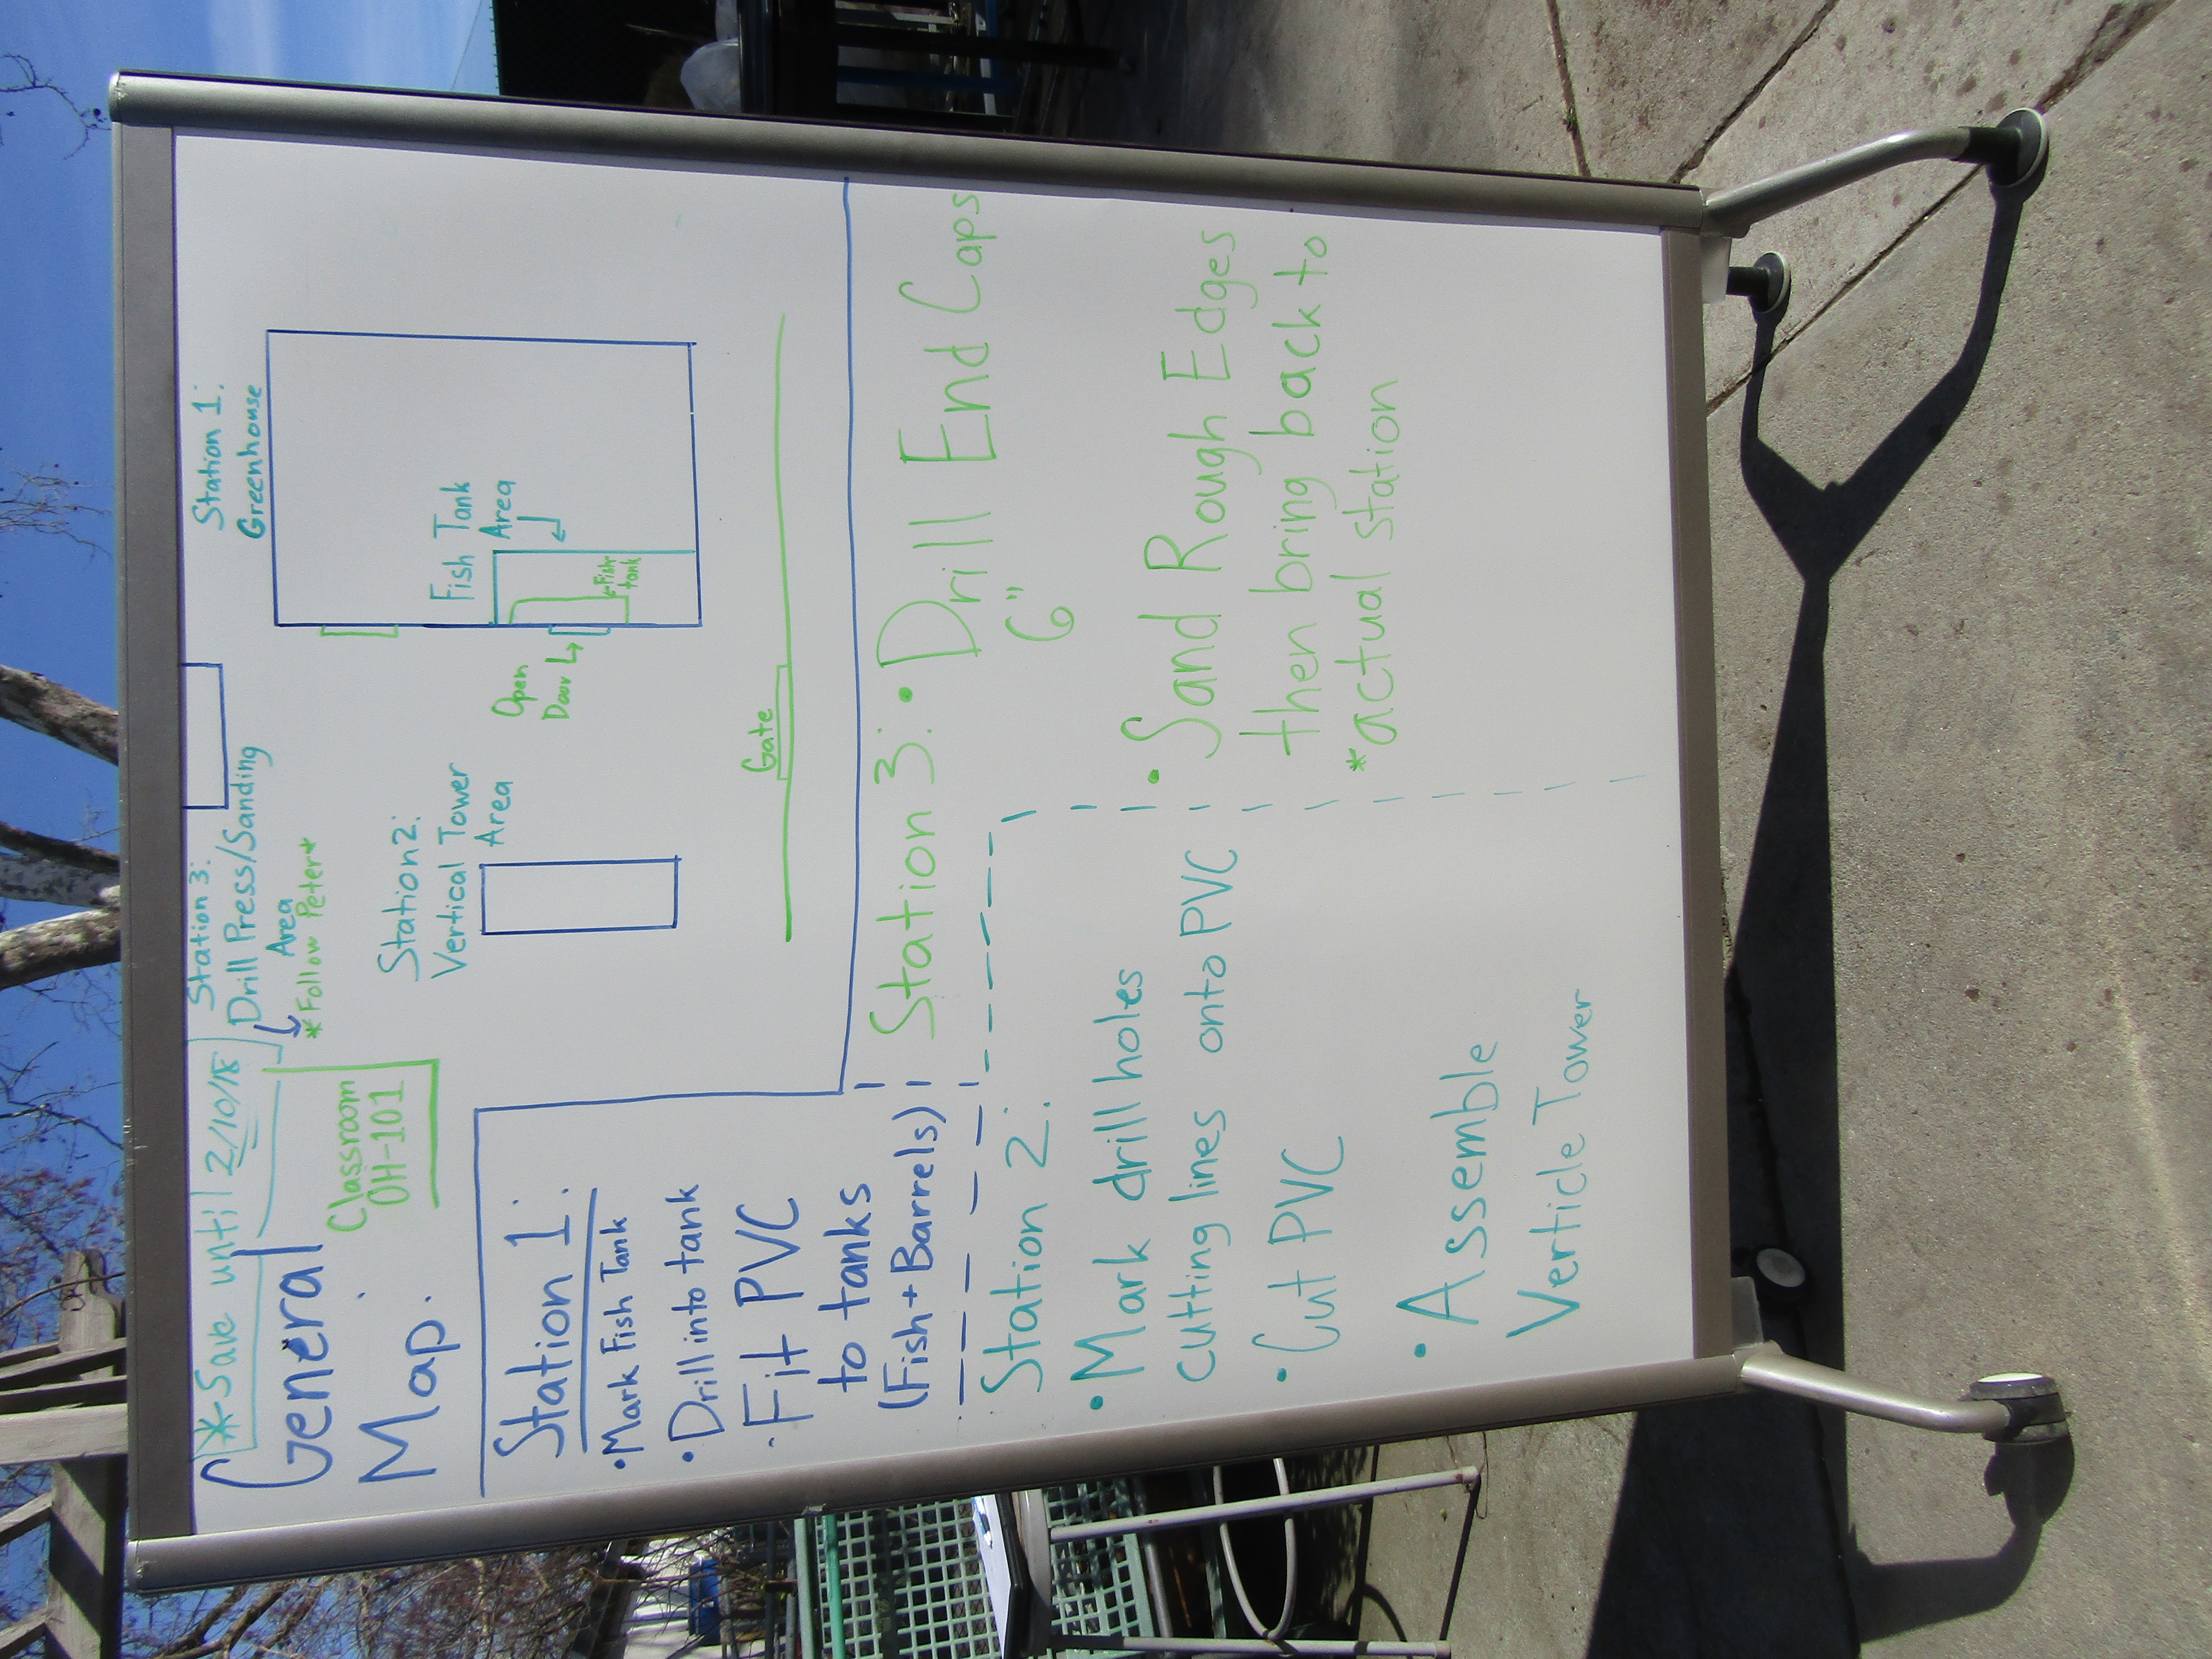 *Save until 2/10/18
General
Map:
Classroom
OH-101
Station 3:
Drill Press/Sanding
Area
*Follow Peter*
Station 2:
Vertical Tower
Area
Station 1:
Greenhouse
Fish Tank
Area
Fish
tank
Open
Door
Gate
Station 1:
•Mark Fish Tank
•Drill into tank
•Fit PVC
to tanks
(Fish + Barrels)
Station 2:
•Mark drill holes
cutting lines onto PVC
•Cut PVC
•Assemble
Verticle Tower
Station 3: •Drill End Caps
6"
•Sand Rough Edges
then bring back to
*actual station